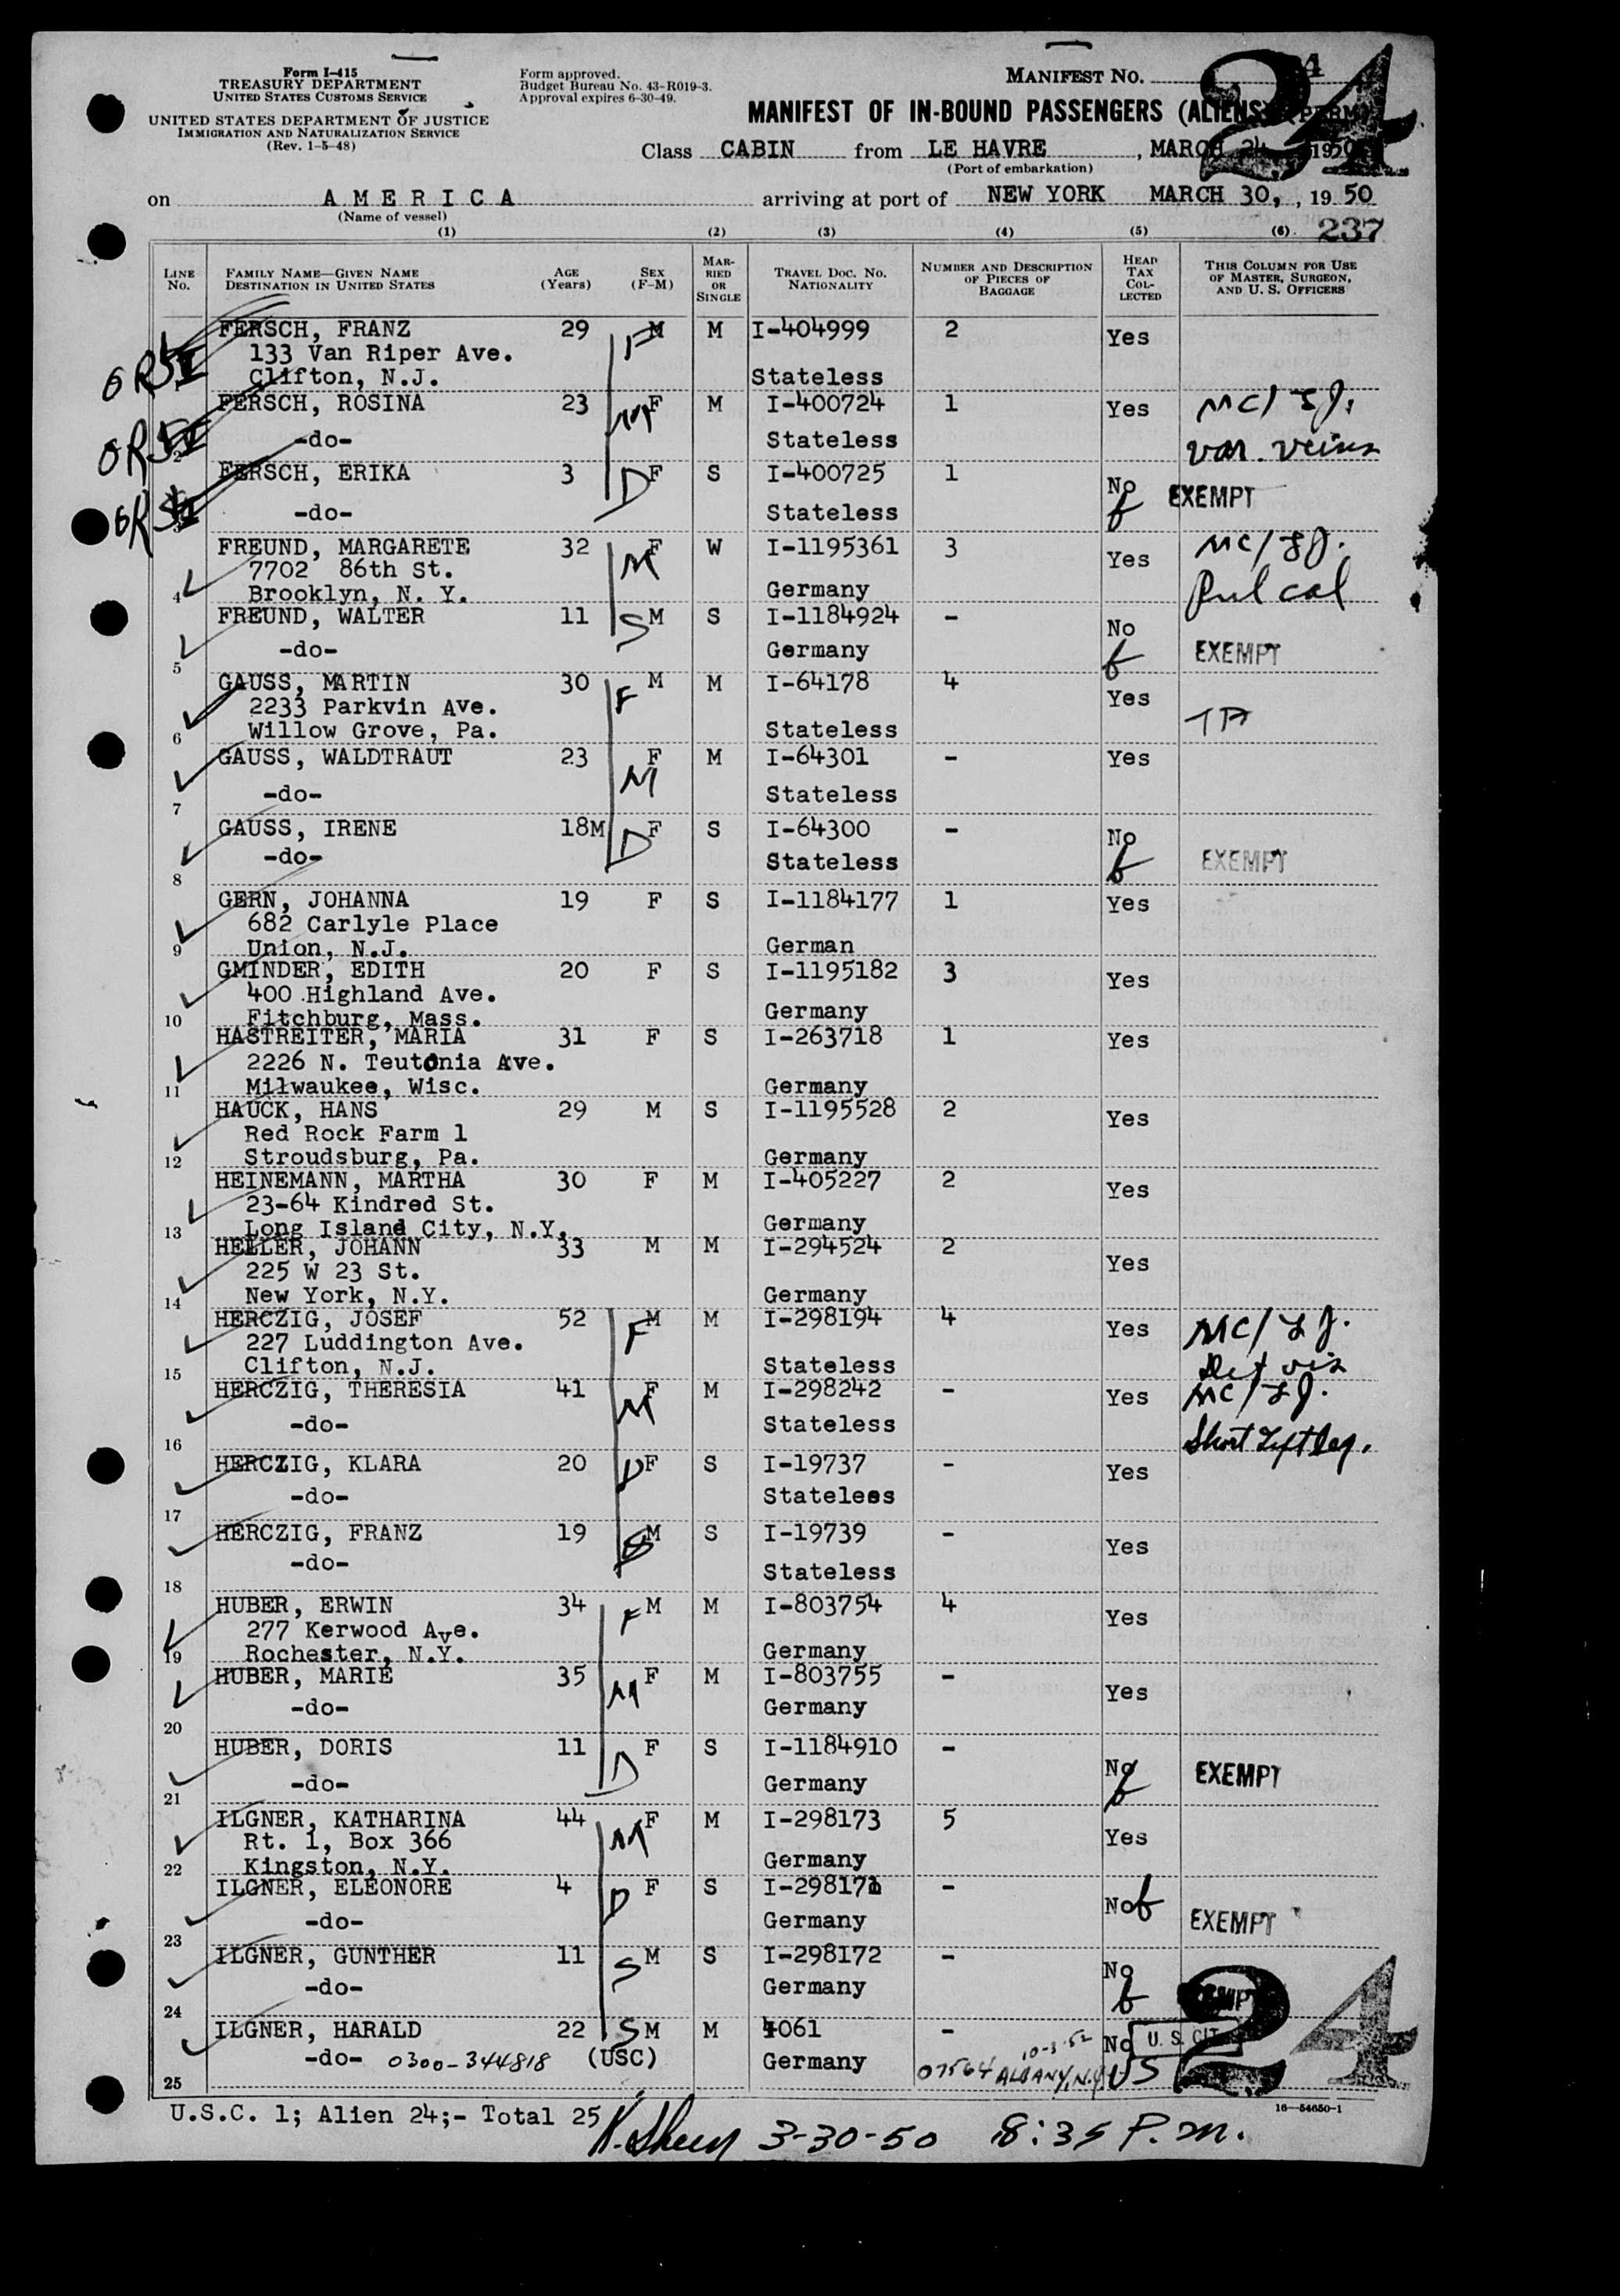 Form I-415
TREASURY DEPARTMENT
UNITED STATES CUSTOMS SERVICE
UNITED STATES DEPARTMENT OF JUSTICE
IMMIGRATION AND NATURALIZATION SERVICE
(Rev. 1-5-48)
Form approved.
Budget Bureau No. 43-R019-3.
Approval expires 6-30-49.
MANIFEST NO.
24
MANIFEST OF IN-BOUND PASSENGERS (ALIENS) (PERM)
Class CABIN from LE HAVRE, MARCH 24 1950
(Port of embarkation)
on AMERICA arriving at port of NEW YORK MARCH 30, , 19 50
(Name of vessel)
(1) (2) (3) (4) (5) (6) 237
LINE No. FAMILY NAME—GIVEN NAME DESTINATION IN UNITED STATES AGE (Years) SEX (F-M) MARRIED OR SINGLE TRAVEL DOC. NO. NATIONALITY NUMBER AND DESCRIPTION OF PIECES OF BAGGAGE HEAD TAX COLLECTED THIS COLUMN FOR USE OF MASTER, SURGEON, AND U. S. OFFICERS
FERSCH, FRANZ 29 M F M I-404999 2 Yes
133 Van Riper Ave.
1 Clifton, N.J. Stateless
FERSCH, ROSINA 23 M F M I-400724 1 Yes MC/
2 -do- Stateless var. veins
FERSCH, ERIKA 3 D F S I-400725 1 No EXEMPT
3 -do- Stateless
FREUND, MARGARETE 32 M F W I-1195361 3 Yes MC/
7702 86th St.
4 Brooklyn, N. Y. Germany Pul cal
FREUND, WALTER 11 S M S I-1184924 - No
5 -do- Germany EXEMPT
GAUSS, MARTIN 30 F M M I-64178 4 Yes
2233 Parkvin Ave.
6 Willow Grove, Pa. Stateless
GAUSS, WALDTRAUT 23 M F M I-64301 - Yes
7 -do- Stateless
GAUSS, IRENE 18M D F S I-64300 - No
8 -do- Stateless EXEMPT
GERN, JOHANNA 19 F S I-1184177 1 Yes
682 Carlyle Place
9 Union, N.J. German
GMINDER, EDITH 20 F S I-1195182 3 Yes
400 Highland Ave.
10 Fitchburg, Mass. Germany
HASTREITER, MARIA 31 F S I-263718 1 Yes
2226 N. Teutonia Ave.
11 Milwaukee, Wisc. Germany
HAUCK, HANS 29 M S I-1195528 2 Yes
Red Rock Farm 1
12 Stroudsburg, Pa. Germany
HEINEMANN, MARTHA 30 F M I-405227 2 Yes
23-64 Kindred St.
13 Long Island City, N.Y. Germany
HELLER, JOHANN 33 M M I-294524 2 Yes
225 W 23 St.
14 New York, N.Y. Germany
HERCZIG, JOSEF 52 F M M I-298194 4 Yes MC/
227 Luddington Ave.
15 Clifton, N.J. Stateless Def vis
HERCZIG, THERESIA 41 M F M I-298242 - Yes MC/
16 -do- Stateless Short Left leg.
HERCZIG, KLARA 20 D F S I-19737 - Yes
17 -do- Stateless
HERCZIG, FRANZ 19 S M S I-19739 - Yes
18 -do- Stateless
HUBER, ERWIN 34 F M M I-803754 4 Yes
277 Kerwood Ave.
19 Rochester, N.Y. Germany
HUBER, MARIE 35 M F M I-803755 - Yes
20 -do- Germany
HUBER, DORIS 11 D F S I-1184910 - No EXEMPT
21 -do- Germany
ILGNER, KATHARINA 44 M F M I-298173 5 Yes
Rt. 1, Box 366
22 Kingston, N.Y. Germany
ILGNER, ELEONORE 4 D F S I-298171 - No
23 -do- Germany EXEMPT
ILGNER, GUNTHER 11 S M S I-298172 - No
24 -do- Germany
ILGNER, HARALD 22 S M M 4061 - No U. S. CIT
25 -do- 0300-344818 (USC) Germany 07564 ALBANY, N.Y. 10-3-52 US
24
U.S.C. 1; Alien 24;- Total 25
16—54650-1
3-30-50 8:35 P.M.